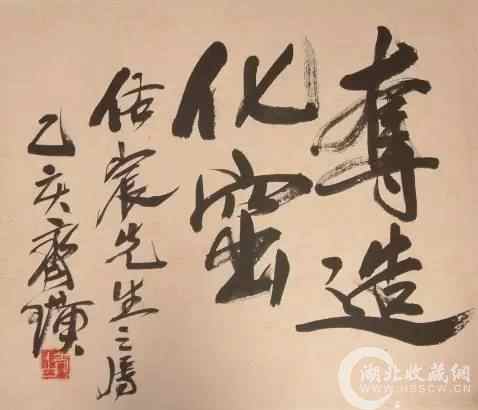 奪造
化窟
佑宸先生之屬
乙亥齊璜
湖北收藏網
HBSCW.CN